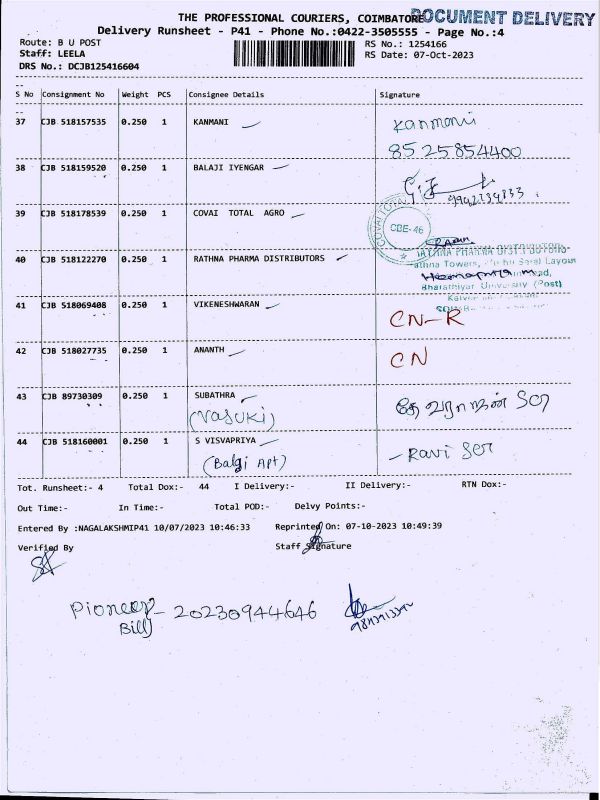 THE PROFESSIONAL COURIERS, COIMBATORE
DOCUMENT DELIVERY
Delivery Runsheet - P41 - Phone No.:0422-3505555 - Page No.:4
Route: B U POST
RS No.: 1254166
Staff: LEELA
RS Date: 07-Oct-2023
DRS No.: DCJB125416604
S No Consignment No Weight PCS Consignee Details Signature
37 CJB 518157535 0.250 1 KANMANI Kanmani
8525854400
38 CJB 518159520 0.250 1 BALAJI IYENGAR
39 CJB 518178539 0.250 1 COVAI TOTAL AGRO
COVAI TOTAL
CBE-46
40 CJB 518122270 0.250 1 RATHNA PHARMA DISTRIBUTORS
RATHNA PHARMA DISTRIBUTORS
Bharathiyar University (Post)
41 CJB 518069408 0.250 1 VIKENESHWARAN CN-R
42 CJB 518027735 0.250 1 ANANTH CN
43 CJB 89730309 0.250 1 SUBATHRA
(Vasuki)
44 CJB 518160001 0.250 1 S VISVAPRIYA - Ravi Ser
(Balgi Apt)
Tot. Runsheet:- 4 Total Dox:- 44 I Delivery:- II Delivery:- RTN Dox:-
Out Time:- In Time:- Total POD:- Delvy Points:-
Entered By :NAGALAKSHMIP41 10/07/2023 10:46:33 Reprinted On: 07-10-2023 10:49:39
Verified By Staff Signature
Pioneer - 20230944646
Bill